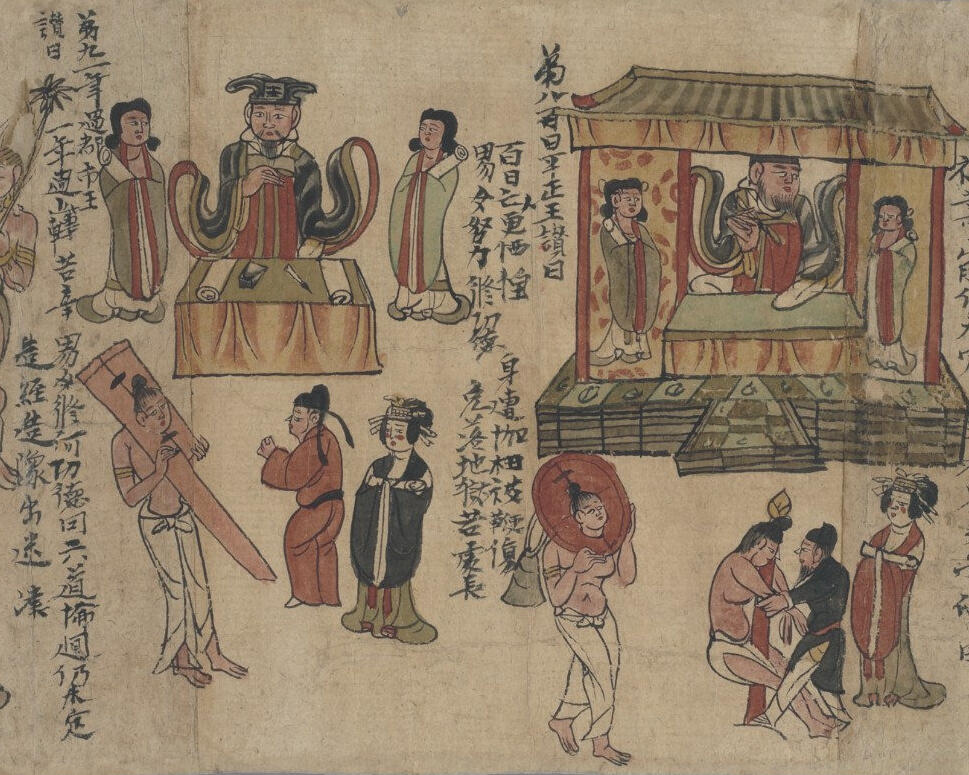 苐八百日平正王讃曰
百日亡以更恓惶 身遭枷杻被鞭傷
男女努力修功德 危落地獄苦處長
苐九一年過都市王
讃曰
一年過此轉苦辛 男女修何功德因六道輪迴仍未定
造經造像出迷津